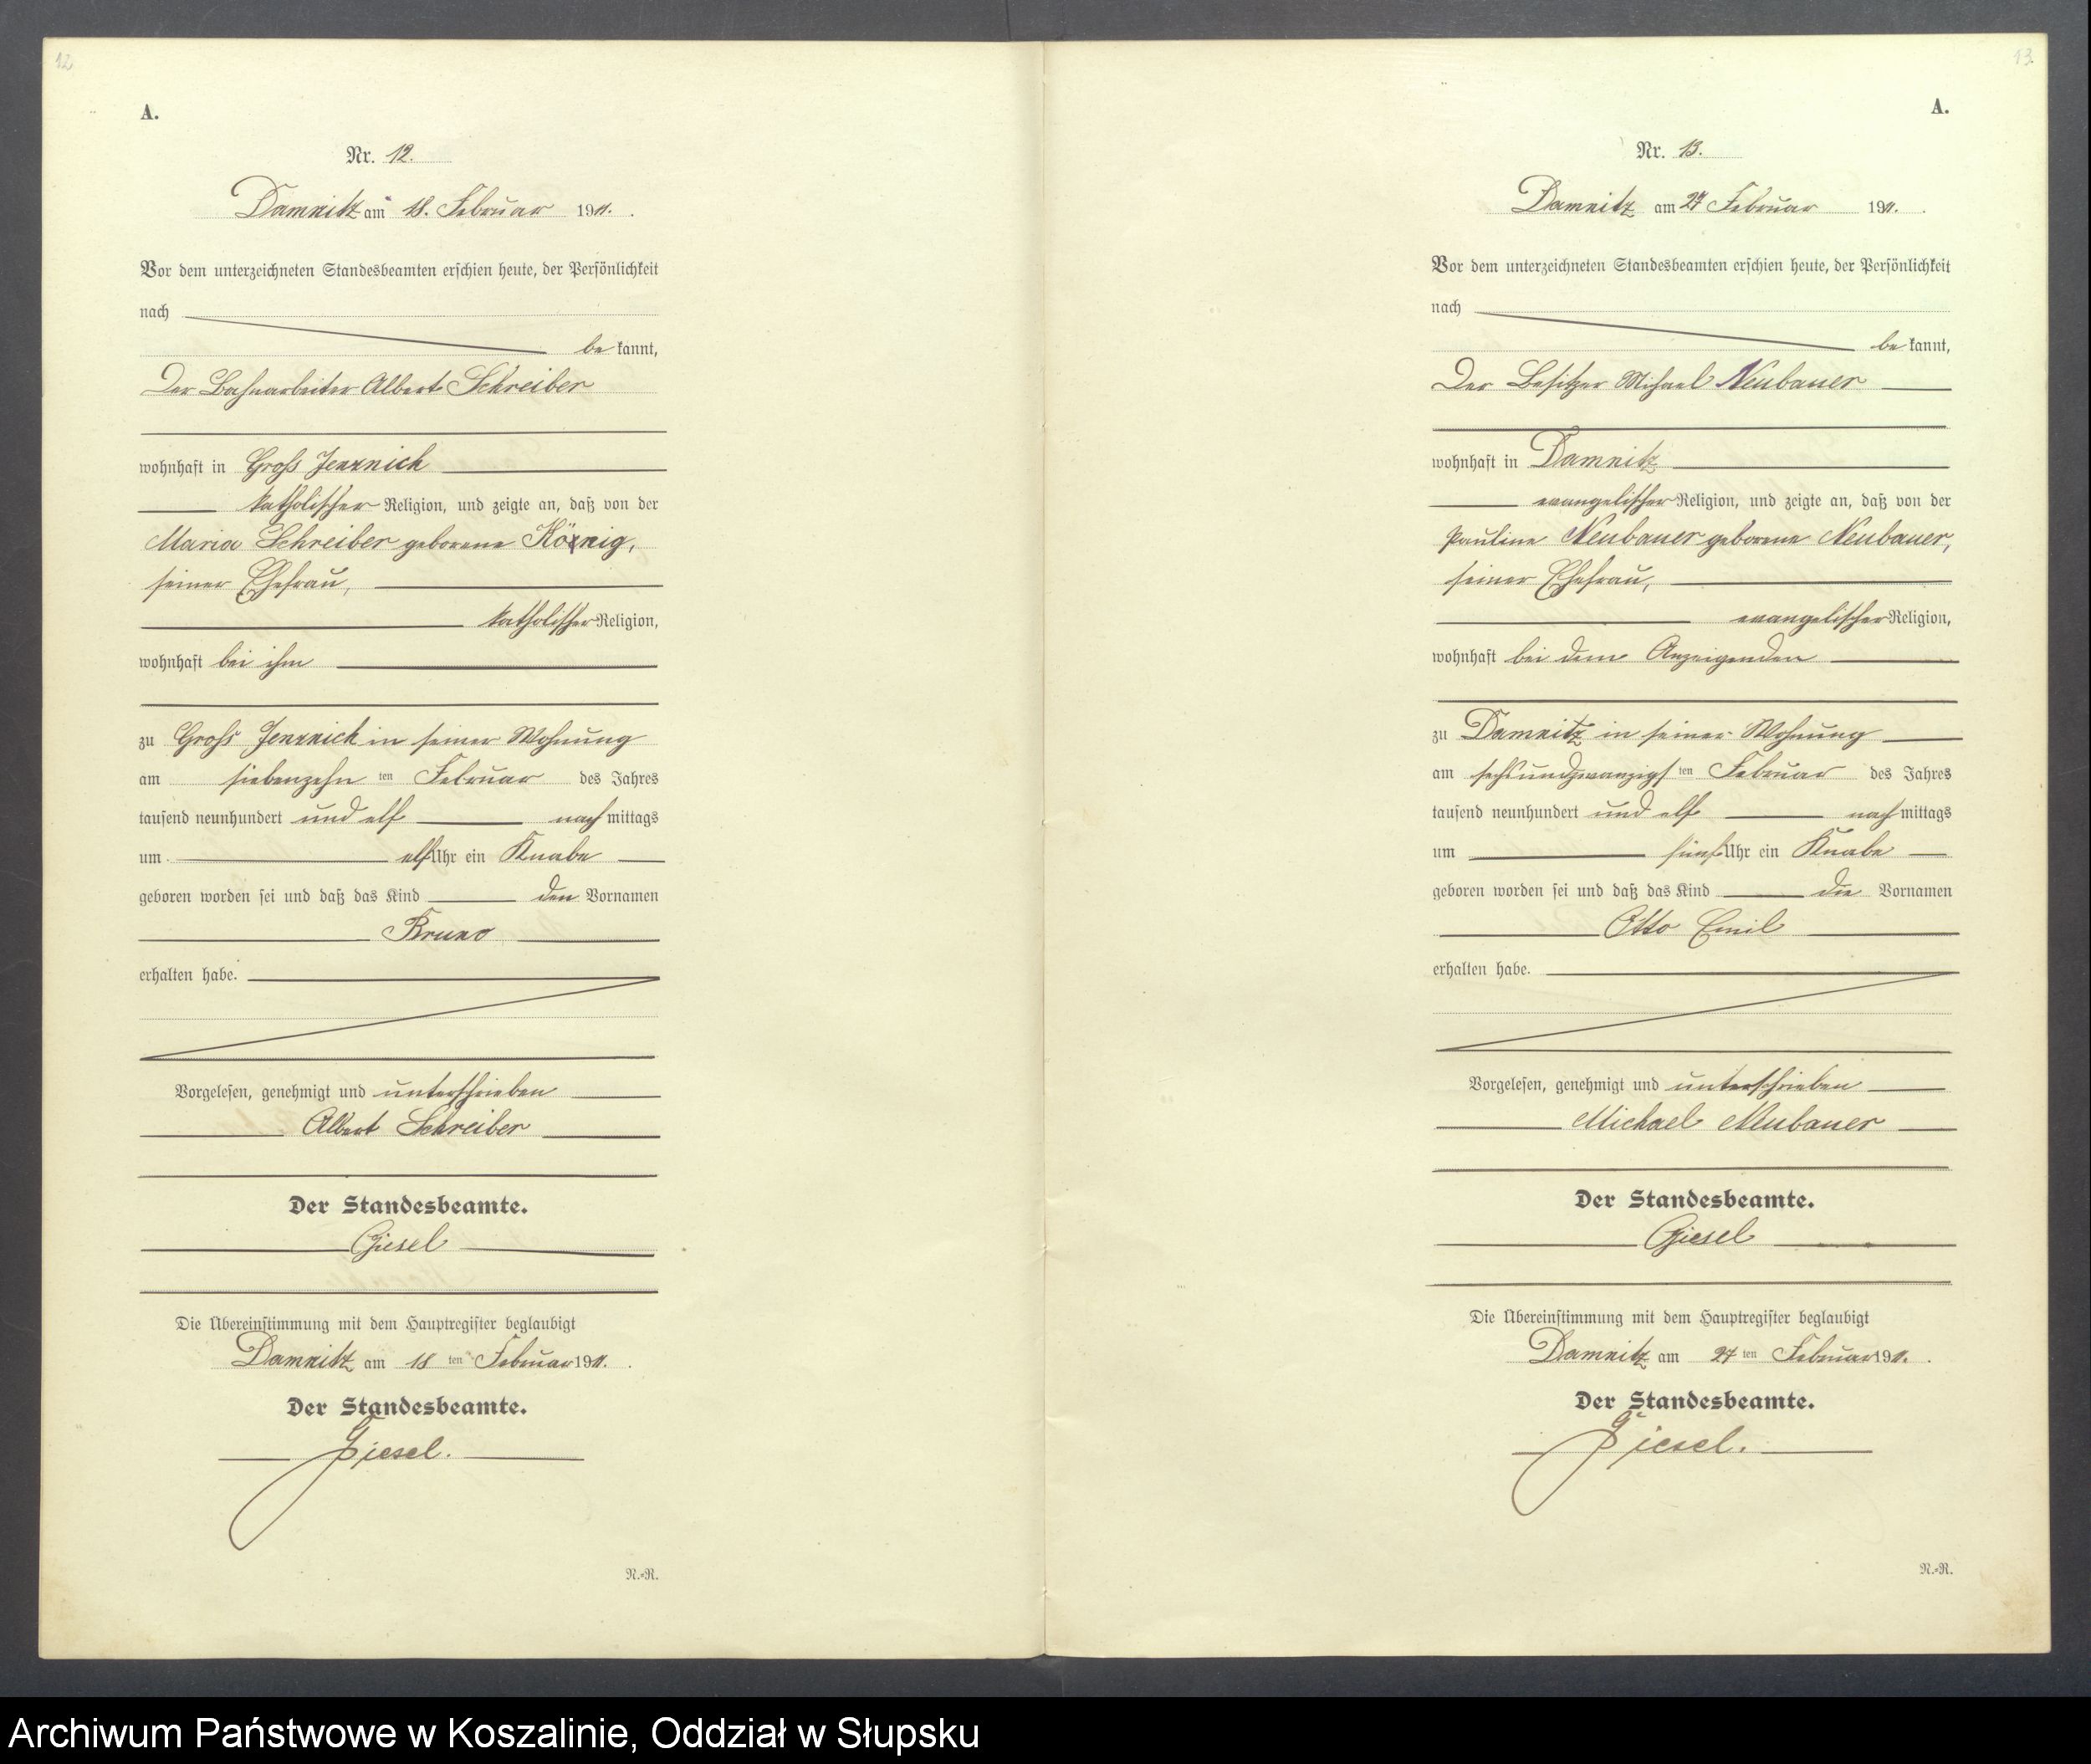 12
A.
Nr. 12.
Damnitz am 18. Februar 1911.
Vor dem unterzeichneten Standesbeamten erschien heute, der Persönlichkeit
nach
be kannt,
Der Bahnarbeiter Albert Schreiber
wohnhaft in Groß Jenznick
katholischer Religion, und zeigte an, daß von der
Maria Schreiber geborene König,
seiner Ehefrau,
katholischer Religion,
wohnhaft bei ihm
zu Groß Jenznick in seiner Wohnung
am siebenzehn ten Februar des Jahres
tausend neunhundert und elf nach mittags
um elf Uhr ein Knabe
geboren worden sei und daß das Kind den Vornamen
Bruno
erhalten habe.
Vorgelesen, genehmigt und unterschrieben
Albert Schreiber
Der Standesbeamte.
Giesel
Die Übereinstimmung mit dem Hauptregister beglaubigt
Damnitz am 18 ten Februar 1911.
Der Standesbeamte.
Giesel.
N.=R.
13
A.
Nr. 13.
Damnitz am 27 Februar 1911.
Vor dem unterzeichneten Standesbeamten erschien heute, der Persönlichkeit
nach
be kannt,
Der Besitzer Michael Neubauer
wohnhaft in Damnitz
evangelischer Religion, und zeigte an, daß von der
Pauline Neubauer geborene Neubauer,
seiner Ehefrau,
evangelischer Religion,
wohnhaft bei dem Anzeigenden
zu Damnitz in seiner Wohnung
am sechsundzwanzigs ten Februar des Jahres
tausend neunhundert und elf nach mittags
um fünf Uhr ein Knabe
geboren worden sei und daß das Kind die Vornamen
Otto Emil
erhalten habe.
Vorgelesen, genehmigt und unterschrieben
Michael Neubauer
Der Standesbeamte.
Giesel
Die Übereinstimmung mit dem Hauptregister beglaubigt
Damnitz am 27 ten Februar 1911.
Der Standesbeamte.
Giesel.
N.=R.
Archiwum Państwowe w Koszalinie, Oddział w Słupsku